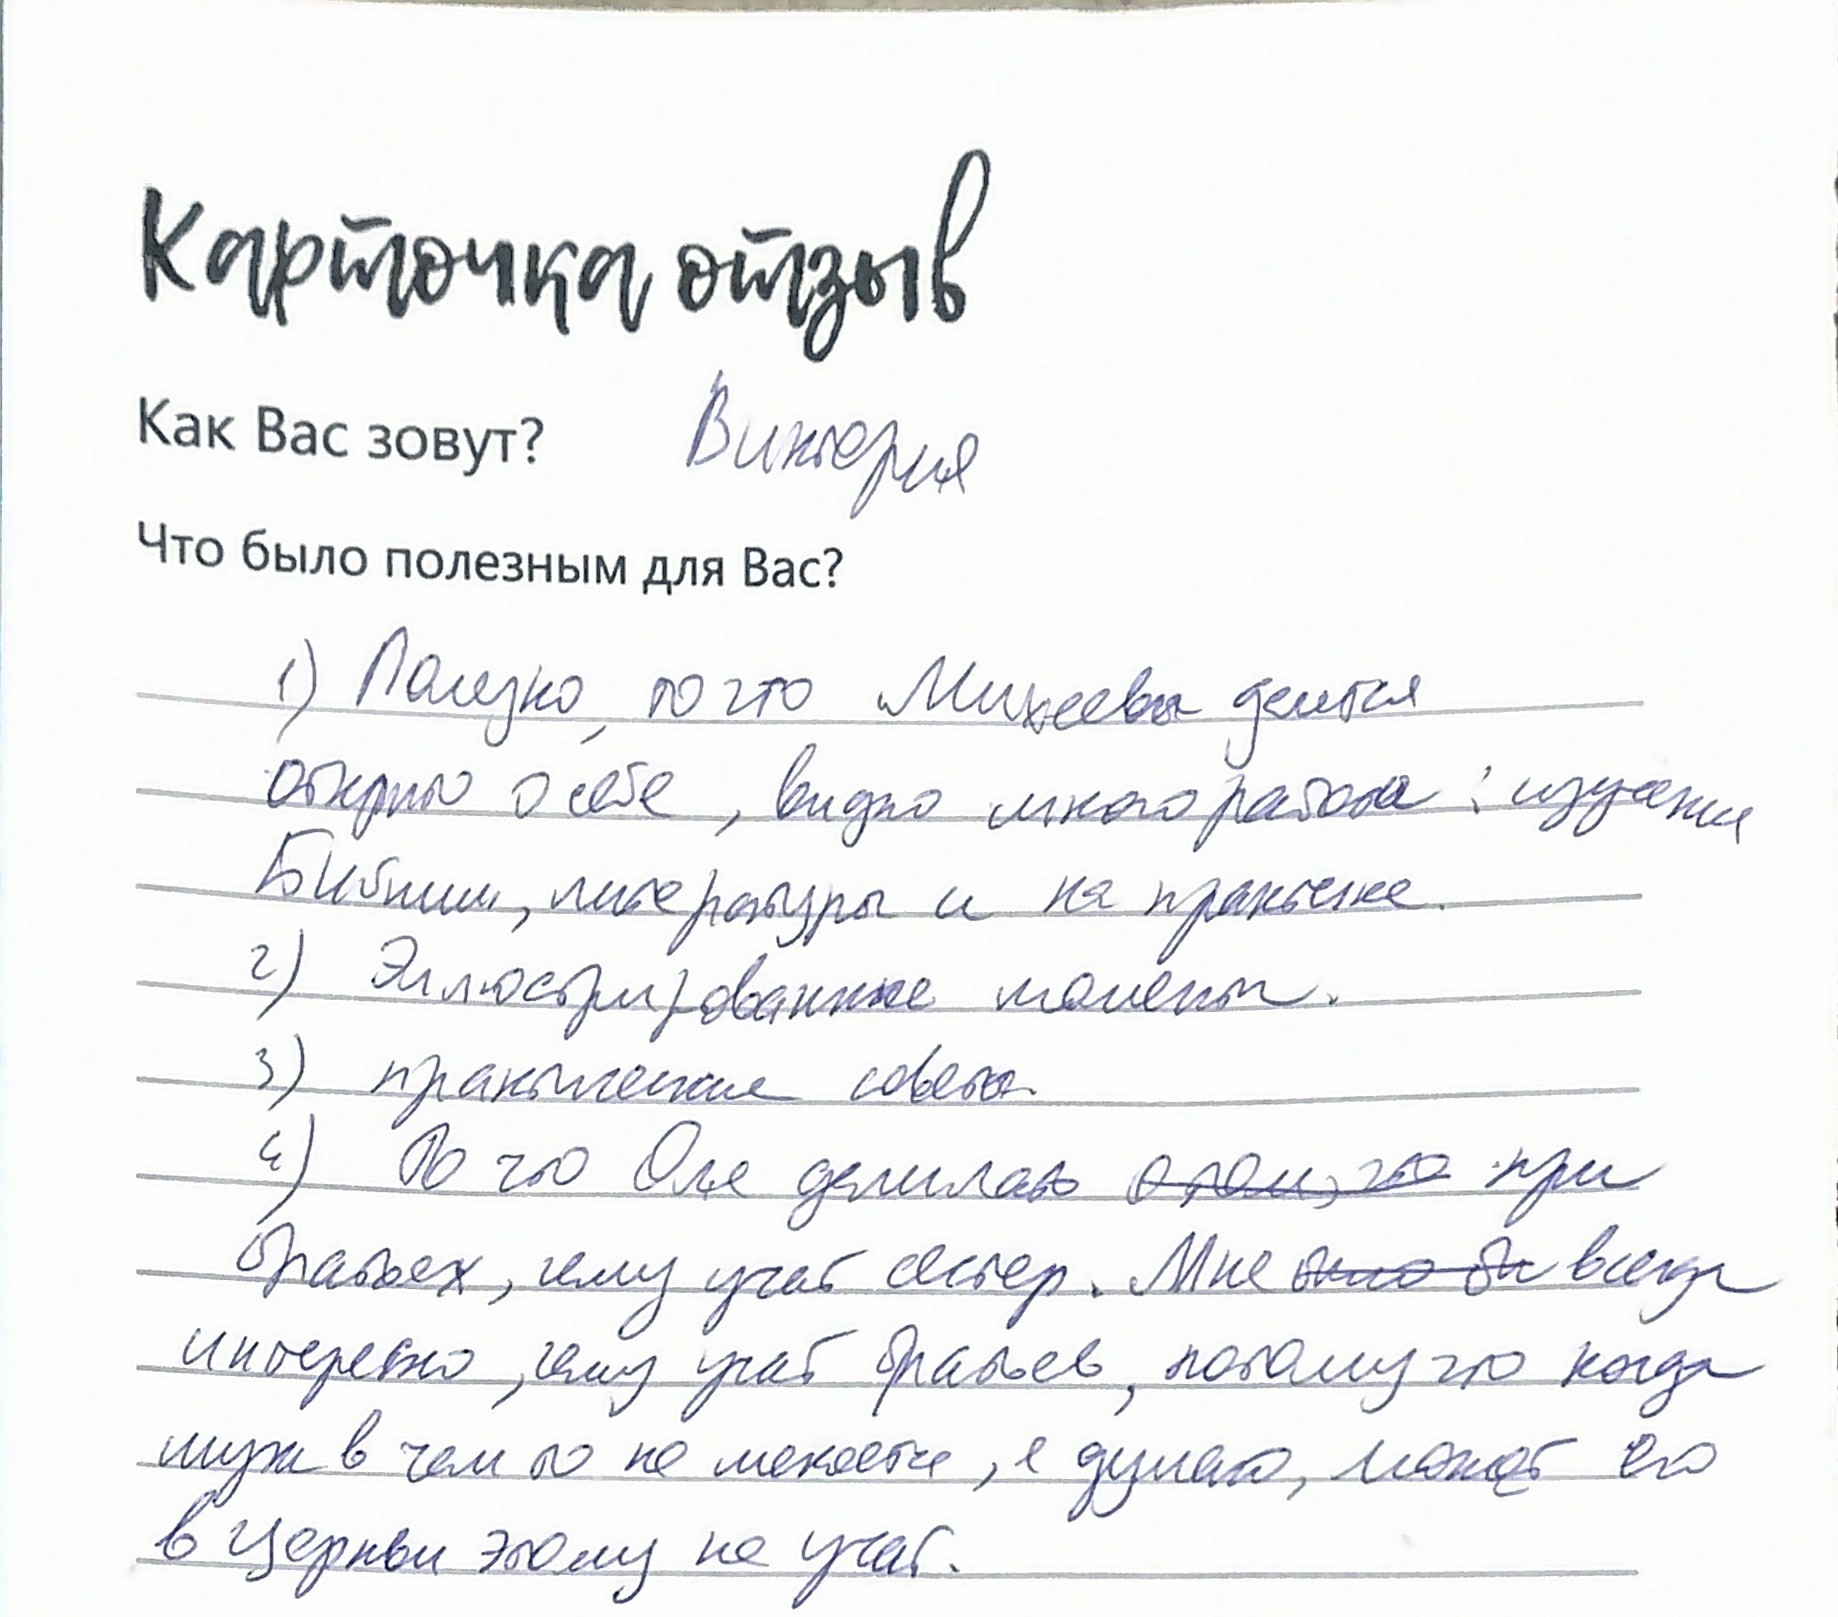 Карточка отзыв
Как Вас зовут? Виктория
Что было полезным для Вас?
1) Полезно, то что Михеевы делятся
открыто о себе, видно много работы: изучения
Библии, литературы и на практике.
2) Эллюстрированные моменты.
3) практические советы.
4) То что Оля делилась о том, что при
братьях, чему учат сестер. Мне было бы всегда
интересно, чему учат братьев, потому что когда
муж в чем то не меняется, я думаю, может его
в церкви этому не учат.